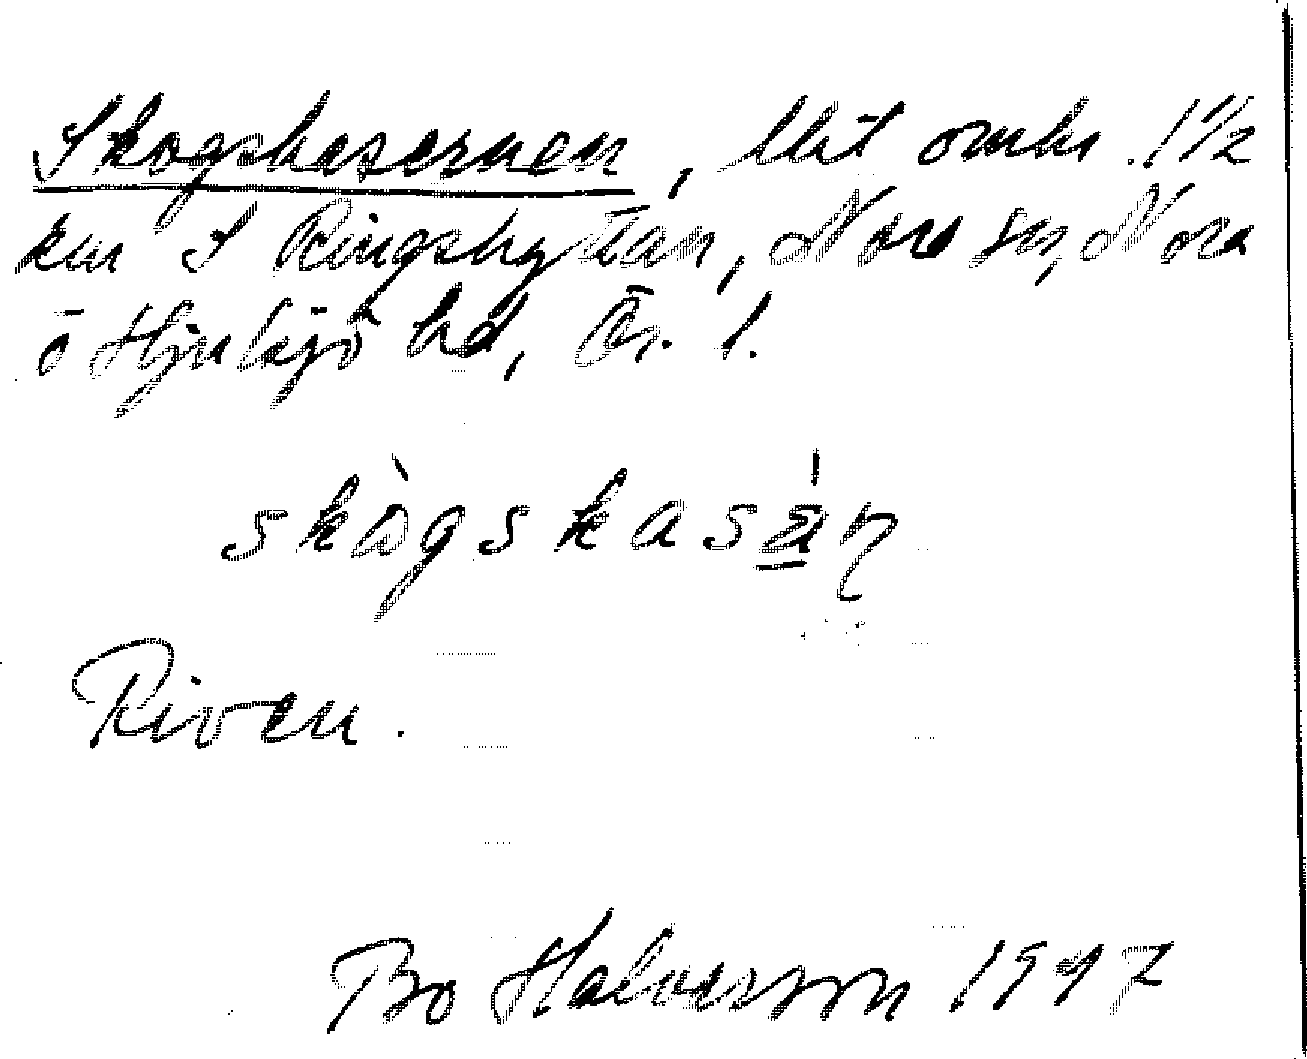 Skogskasernen, blit omkr. 1 1/2
km S Ringshyttan, Nora sn, Nora
o Hjulsjö hd, Ör. l.
skògskasá̱ṇ
Riven.
Bo Halvarsson 1947